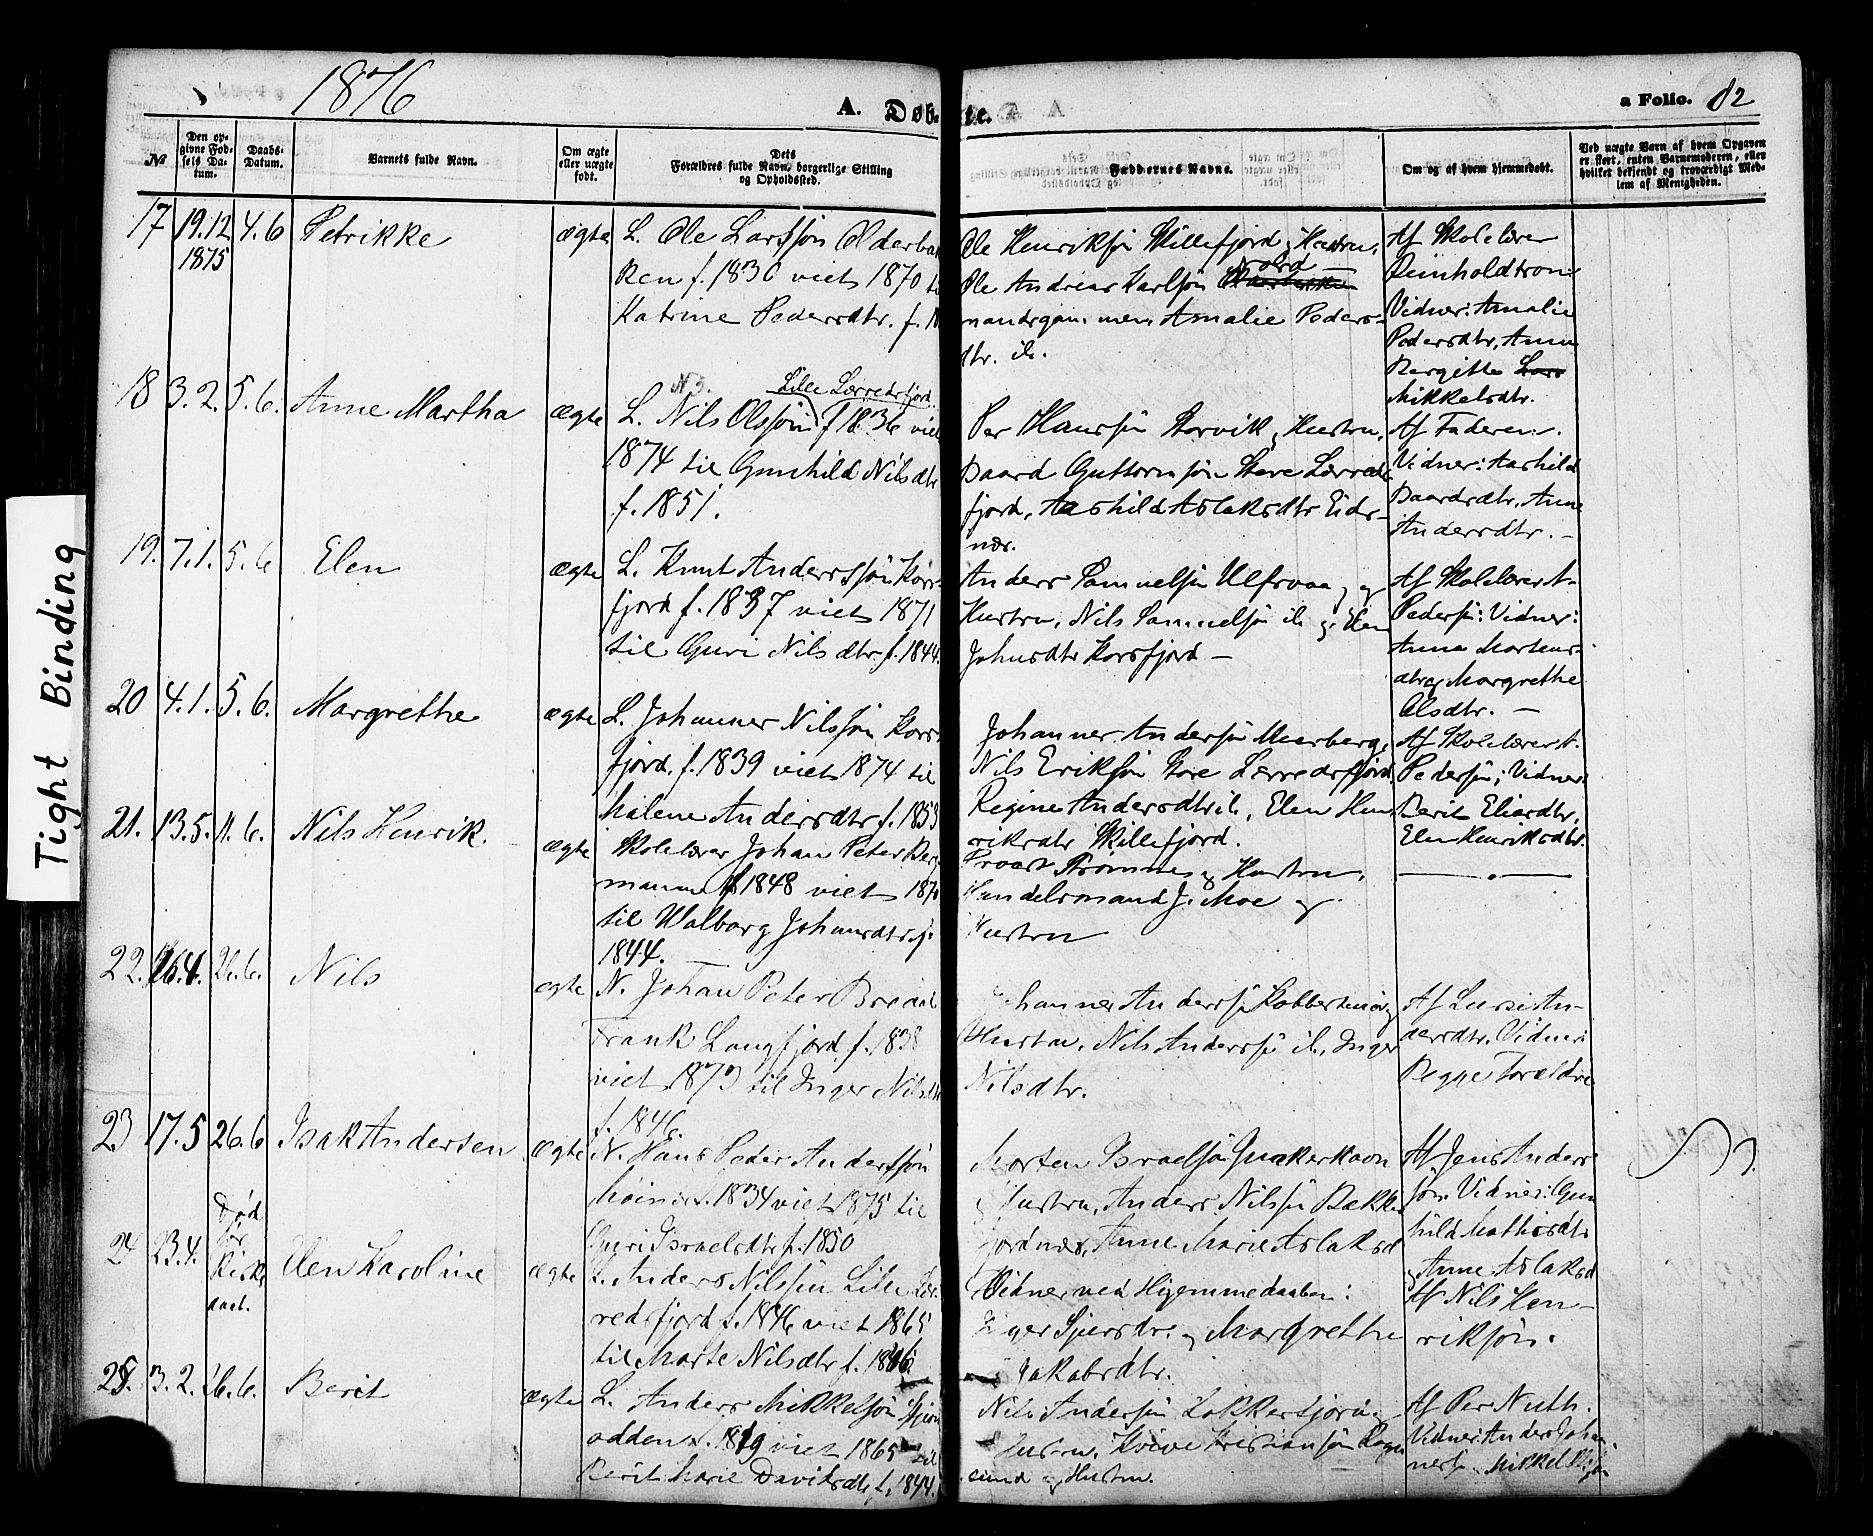 1876
A. Døb-
te.
a Folio. 82
Tight Binding
№
Den op-
givne Fød-
sels Da-
tum.
Daabs-
Datum.
Barnets fulde Navn.
Om ægte
eller uægte
født.
Dets
Forældres fulde Navn, borgerlige Stilling
og Opholdssted.
Faddernes Navne.
Om og af hvem hjemmedøbt.
Ved uægte Barn af hvem Opgaven
er skeet, enten Barnemoderen, eller
hvilket bekjendt og troværdigt Med-
lem af Menigheden.
17 19.12 4.6 Petrikke ægte
1875
L. Ole Larsson Olderbak
ken f. 1830 viet 1870 ti
Katrine Pedersdtr. f.
Ole Henriksøn Skillefjord, Hustru,
Ole Andreas Karlsøn Nord
mandsgam. men, Amalie Peders-
dtr. ib.
Af Skolelærer
Reinholdtson
Vidner: Amalie
Pedersdtr, Anne
Bergitte Lars
Mikkelsdtr.
18 3.2. 5.6. Anne Martha ægte
N 3. Lille Lerredsfjord
L. Nils Olssøn f 1836 viet
1874 til Gunhild Nilsdtr
f. 1851.
Per Hansøn Storvik, Hustru,
Baard Guttormsøn Store Lerreds
fjord, Aashild Aslaksdtr Eids-
nær.
Af Faderen.
Vidner: Aashild
Baardsdtr, Anne
Andersdtr. –
19. 7.1. 5.6 Elen ægte
L. Knut Anderssøn Kors
fjord f. 1837 viet 1871
til Guri Nilsdtr. f. 1844.
Anders Samuelsøn Ulfsvaag og
Hustru, Nils Samuelsøn ib og Elen
Johnsdtr Korsfjord –
Af Skolelærer A.
Pedersøn: Vidner:
Anna Mortens-
dtr og Margrethe
Olsdtr. –
20 4.1. 5.6. Margrethe ægte
L. Johannes Nilssøn Kors
fjord. f. 1839 viet 1874 til
Malene Andersdtr f. 1853
Johannes Andersøn
Nils Eriksøn Store Lerredsfjord,
Regine Andersdtr ib, Elen Hen
riksdtr Skillefjord.
Af Skolelærer A.
Pedersøn; Vidner:
Berit Eliasdtr,
Elen Henriksdtr.
21. 13.5. 11.6. Nils Henrik. ægte
Skolelærer Johan Peter Berg
mann f 1848 viet 187
til Walborg Johnsdtr f.
1844. –
Provst Strømnes og Hustru,
Handelsmand J. Moe og
Hustru
22. 26.4. 26.6. Nils ægte
N. Johan Peter Bredal
Frank Langfjord f. 1838
viet 1873 til Inger Nilsdtr
f. 1846
Johannes Anderssøn Kobbernes og
Hustru, Nils Anderssøn ib, Inger
Nilsdtr.
Af Lussi An-
dersdtr. Vidner:
Begge Forældre
23 17.5 26.6 Isak Andersen ægte
N. Hans Peder Anderssøn
f. 1834 viet 1875 til
Guri Israelsdtr f. 1850
Morten Israelsøn Quækerhavn
og Hustru, Anders Nilsøn Bække
fjordnæs, Anne Marie Aslaksd
Af Jens Anders
søn. Vidner: Gun
hild Mathisdtr
og Anne Aslaksd
24 23.4. Død
før
Kirke
daab.
Elen Karoline ægte
L. Anders Nilssøn Lille Ler
redsfjord f. 1846 viet 1865
til Marte Nilsdtr f. 1846
Vidner ved Hjemmedaaben:
Inger Sjursdtr. og Margrethe
Jakobsdtr.
Af Nils Hen-
riksøn.
25. 3.2. 26.6. Berit ægte
L. Anders Mikkelsøn
odden f. 1819 viet 1865 til
Berit Marie Davidsdtr f. 1844.
Nils Andersøn Kokkerfjord og
Hustru, Kristiansøn Rogn
sund og Hustru.
Af Per Nuth.
Vidner: Anders Johan
nersøn Mikkel